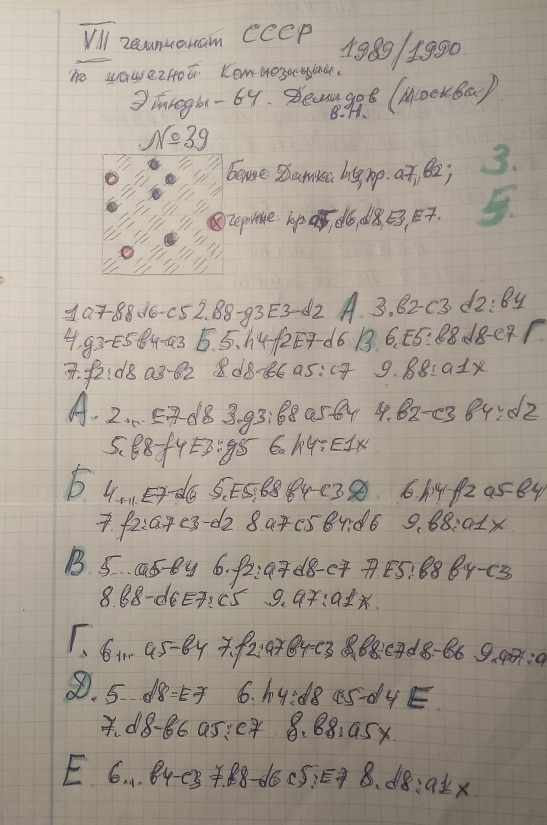 VII чемпионат СССР 1989/1990
по шашечной композиции.
Этюды-64. Демидов (Москва)
В.Н.
№39
Белые: Дамка h4, пр. a7, в2; 3.
Черные: пр. a5, d6, d8, E3, E7. 5.
1.a7-в8 d6-c5 2.в8-g3 E3-d2 А. 3.в2-c3 d2:в4
4.g3-E5 в4-a3 Б. 5.h4-f2 E7-d6 В 6.E5:в8 d8-c7 Г.
7.f2:d8 a3-в2 8.d8-в6 a5:c7 9.в8:a1x
А. 2... E7-d8 3.g3:в8 a5-в4 4.в2-c3 в4:d2
5.в8-f4 E3:g5 6.h4:E1x.
Б 4... E7-d6 5.E5:в8 в4-c3 Д. 6.h4-f2 a5-в4
7.f2:a7 c3-d2 8.a7 c5 в4:d6 9.в8:a1x.
В. 5... a5-в4 6.f2:a7 d8-c7 7.E5:в8 в4-c3
8.в8-d6 E7:c5 9.a7:a1x.
Г. 6... a5-в4 7.f2:a7 в4-c3 8.в8:c7 d8-в6 9.a7:a
Д. 5...d8-E7 6.h4:d8 c5-d4 Е
7.d8-в6 a5:c7 8.в8:a5x.
Е 6... в4-c3 7.в8-d6 c5:E7 8.d8:a1x